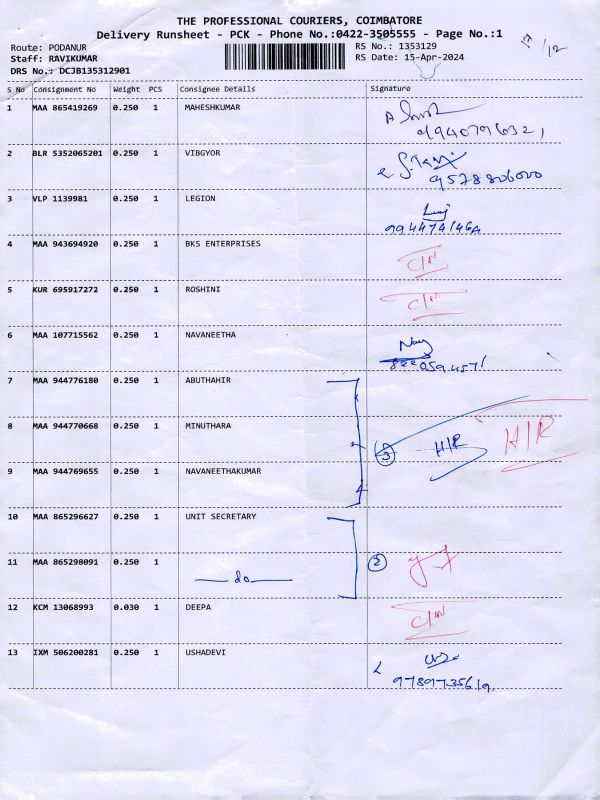 THE PROFESSIONAL COURIERS, COIMBATORE
Delivery Runsheet - PCK - Phone No.:0422-3505555 - Page No.:1
Route: PODANUR
Staff: RAVIKUMAR
DRS No.: DCJB135312901
RS No.: 1353129
RS Date: 15-Apr-2024
S No Consignment No Weight PCS Consignee Details Signature
1 MAA 865419269 0.250 1 MAHESHKUMAR
2 BLR 5352065201 0.250 1 VIBGYOR
9578806000
3 VLP 1139981 0.250 1 LEGION
4 MAA 943694920 0.250 1 BKS ENTERPRISES C/N
5 KUR 695917272 0.250 1 ROSHINI C/N
6 MAA 107715562 0.250 1 NAVANEETHA
7 MAA 944776180 0.250 1 ABUTHAHIR
8 MAA 944770668 0.250 1 MINUTHARA
3 H/R H/R
9 MAA 944769655 0.250 1 NAVANEETHAKUMAR
10 MAA 865296627 0.250 1 UNIT SECRETARY
11 MAA 865298091 0.250 1 do 2
12 KCM 13068993 0.030 1 DEEPA C/N
13 IXM 506200281 0.250 1 USHADEVI
9789735619